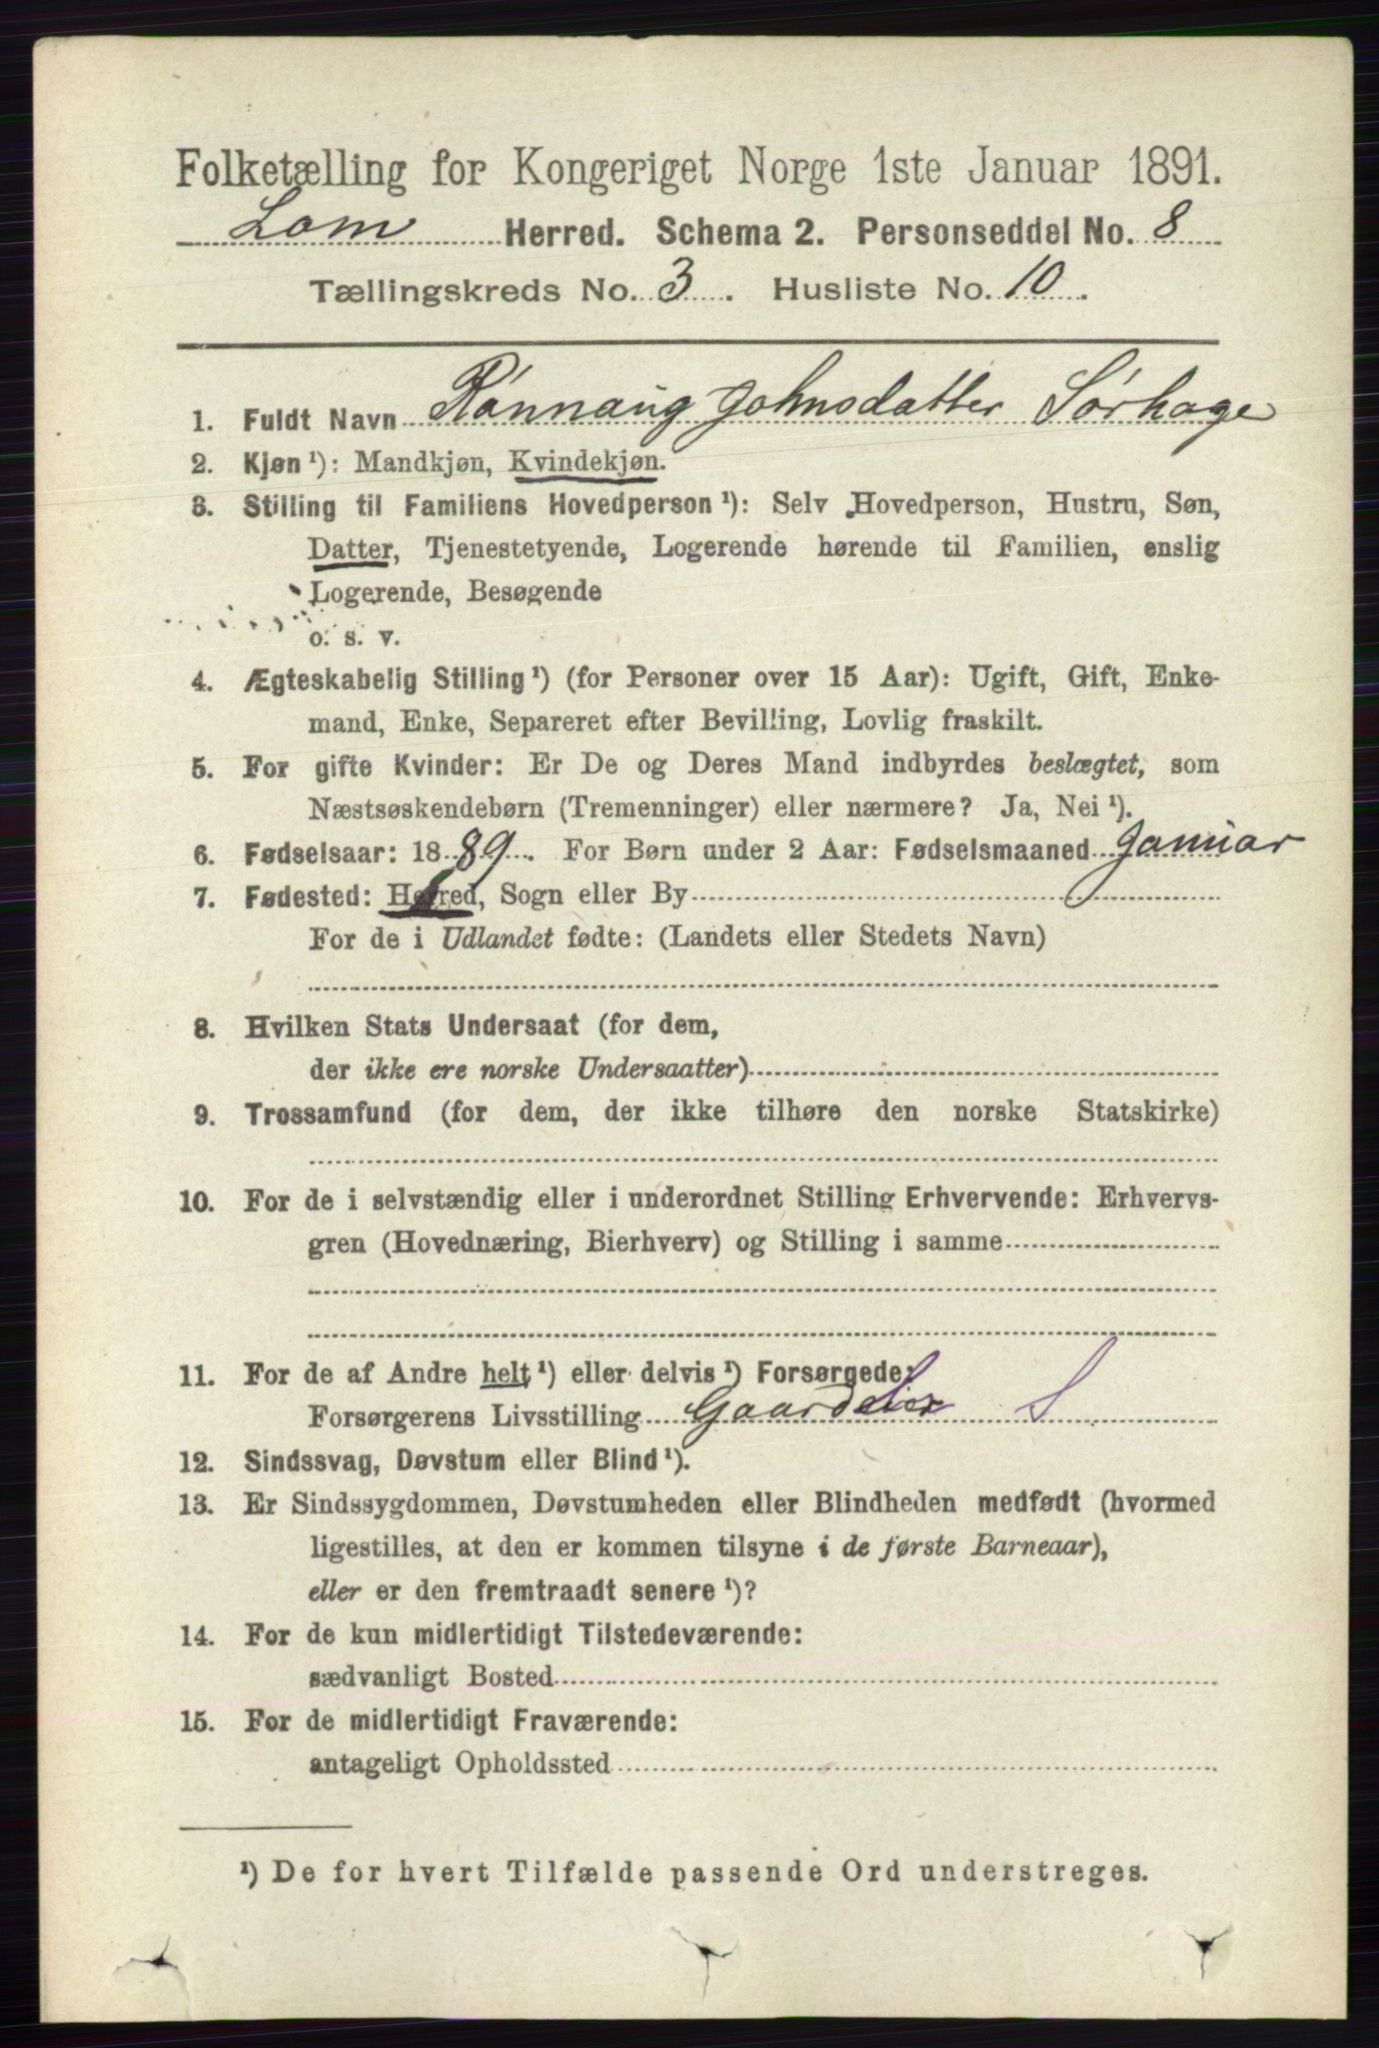 Folketælling for Kongeriget Norge 1ste Januar 1891.
Lom Herred. Schema 2. Personseddel No. 8
Tællingskreds No. 3. Husliste No. 10.
1. Fuldt Navn Rónnaug Johnsdatter Sórhage
2. Kjøn ¹): Mandkjøn, Kvindekjøn.
3. Stilling til Familiens Hovedperson ¹): Selv Hovedperson, Hustru, Søn,
Datter, Tjenestetyende, Logerende hørende til Familien, enslig
Logerende, Besøgende
o. s. v.
4. Ægteskabelig Stilling ¹) (for Personer over 15 Aar): Ugift, Gift, Enke-
mand, Enke, Separeret efter Bevilling, Lovlig fraskilt.
5. For gifte Kvinder: Er De og Deres Mand indbyrdes beslægtet, som
Næstsøskendebørn (Tremenninger) eller nærmere? Ja, Nei ¹).
6. Fødselsaar: 1889. For Børn under 2 Aar: Fødselsmaaned Januar
7. Fødested: Herred, Sogn eller By
For de i Udlandet fødte: (Landets eller Stedets Navn)
8. Hvilken Stats Undersaat (for dem,
der ikke ere norske Undersaatter)
9. Trossamfund (for dem, der ikke tilhøre den norske Statskirke)
10. For de i selvstændig eller i underordnet Stilling Erhvervende: Erhvervs-
gren (Hovednæring, Bierhverv) og Stilling i samme
11. For de af Andre helt ¹) eller delvis ¹) Forsørgede:
Forsørgerens Livsstilling Gaard S
12. Sindssvag, Døvstum eller Blind ¹).
13. Er Sindssygdommen, Døvstumheden eller Blindheden medfødt (hvormed
ligestilles, at den er kommen tilsyne i de første Barneaar),
eller er den fremtraadt senere ¹)?
14. For de kun midlertidigt Tilstedeværende:
sædvanligt Bosted
15. For de midlertidigt Fraværende:
antageligt Opholdssted
¹) De for hvert Tilfælde passende Ord understreges.